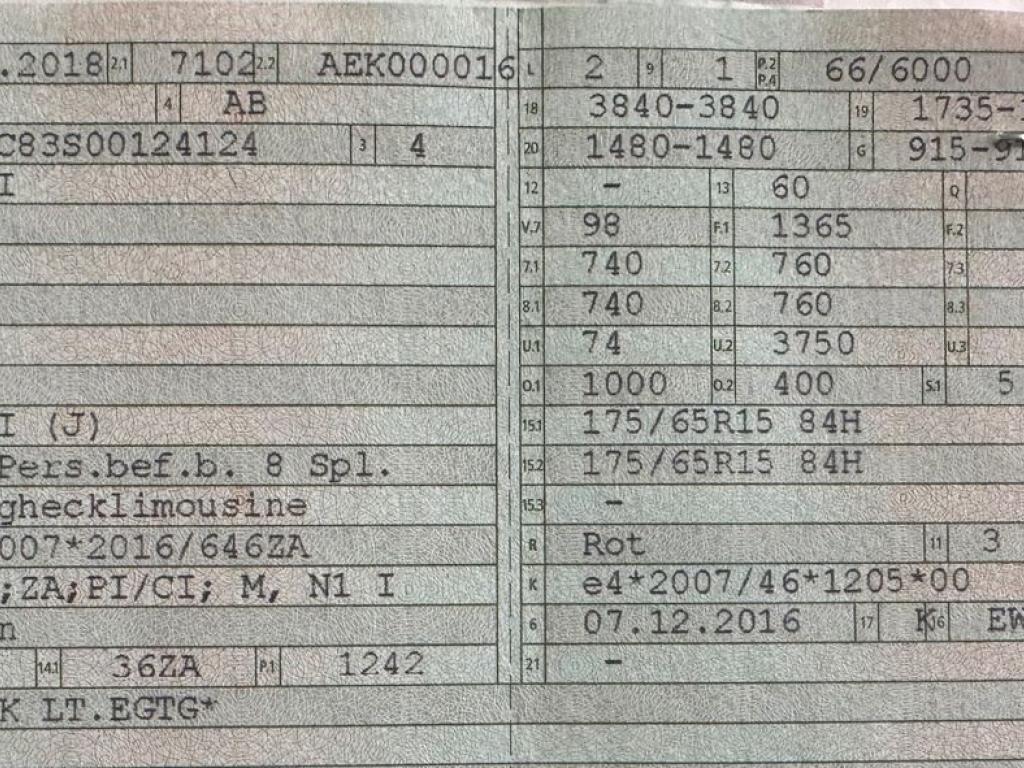 .2018 2.1 7102 2.2 AEK000016
4 AB
C83S00124124 3 4
I
I (J)
Pers.bef.b. 8 Spl.
ghecklimousine
007*2016/646ZA
;ZA;PI/CI; M, N1 I
n
14.1 36ZA P.1 1242
K LT.EGTG*
L 2 9 1 P.2 P.4 66/6000
18 3840-3840 19 1735-1
20 1480-1480 G 915-91
12 - 13 60 Q
V.7 98 F.1 1365 F.2
7.1 740 7.2 760 7.3
8.1 740 8.2 760 8.3
U.1 74 U.2 3750 U.3
O.1 1000 O.2 400 S.1 5
15.1 175/65R15 84H
15.2 175/65R15 84H
15.3 -
R Rot 11 3
K e4*2007/46*1205*00
6 07.12.2016 17 K 16 EW
21 -